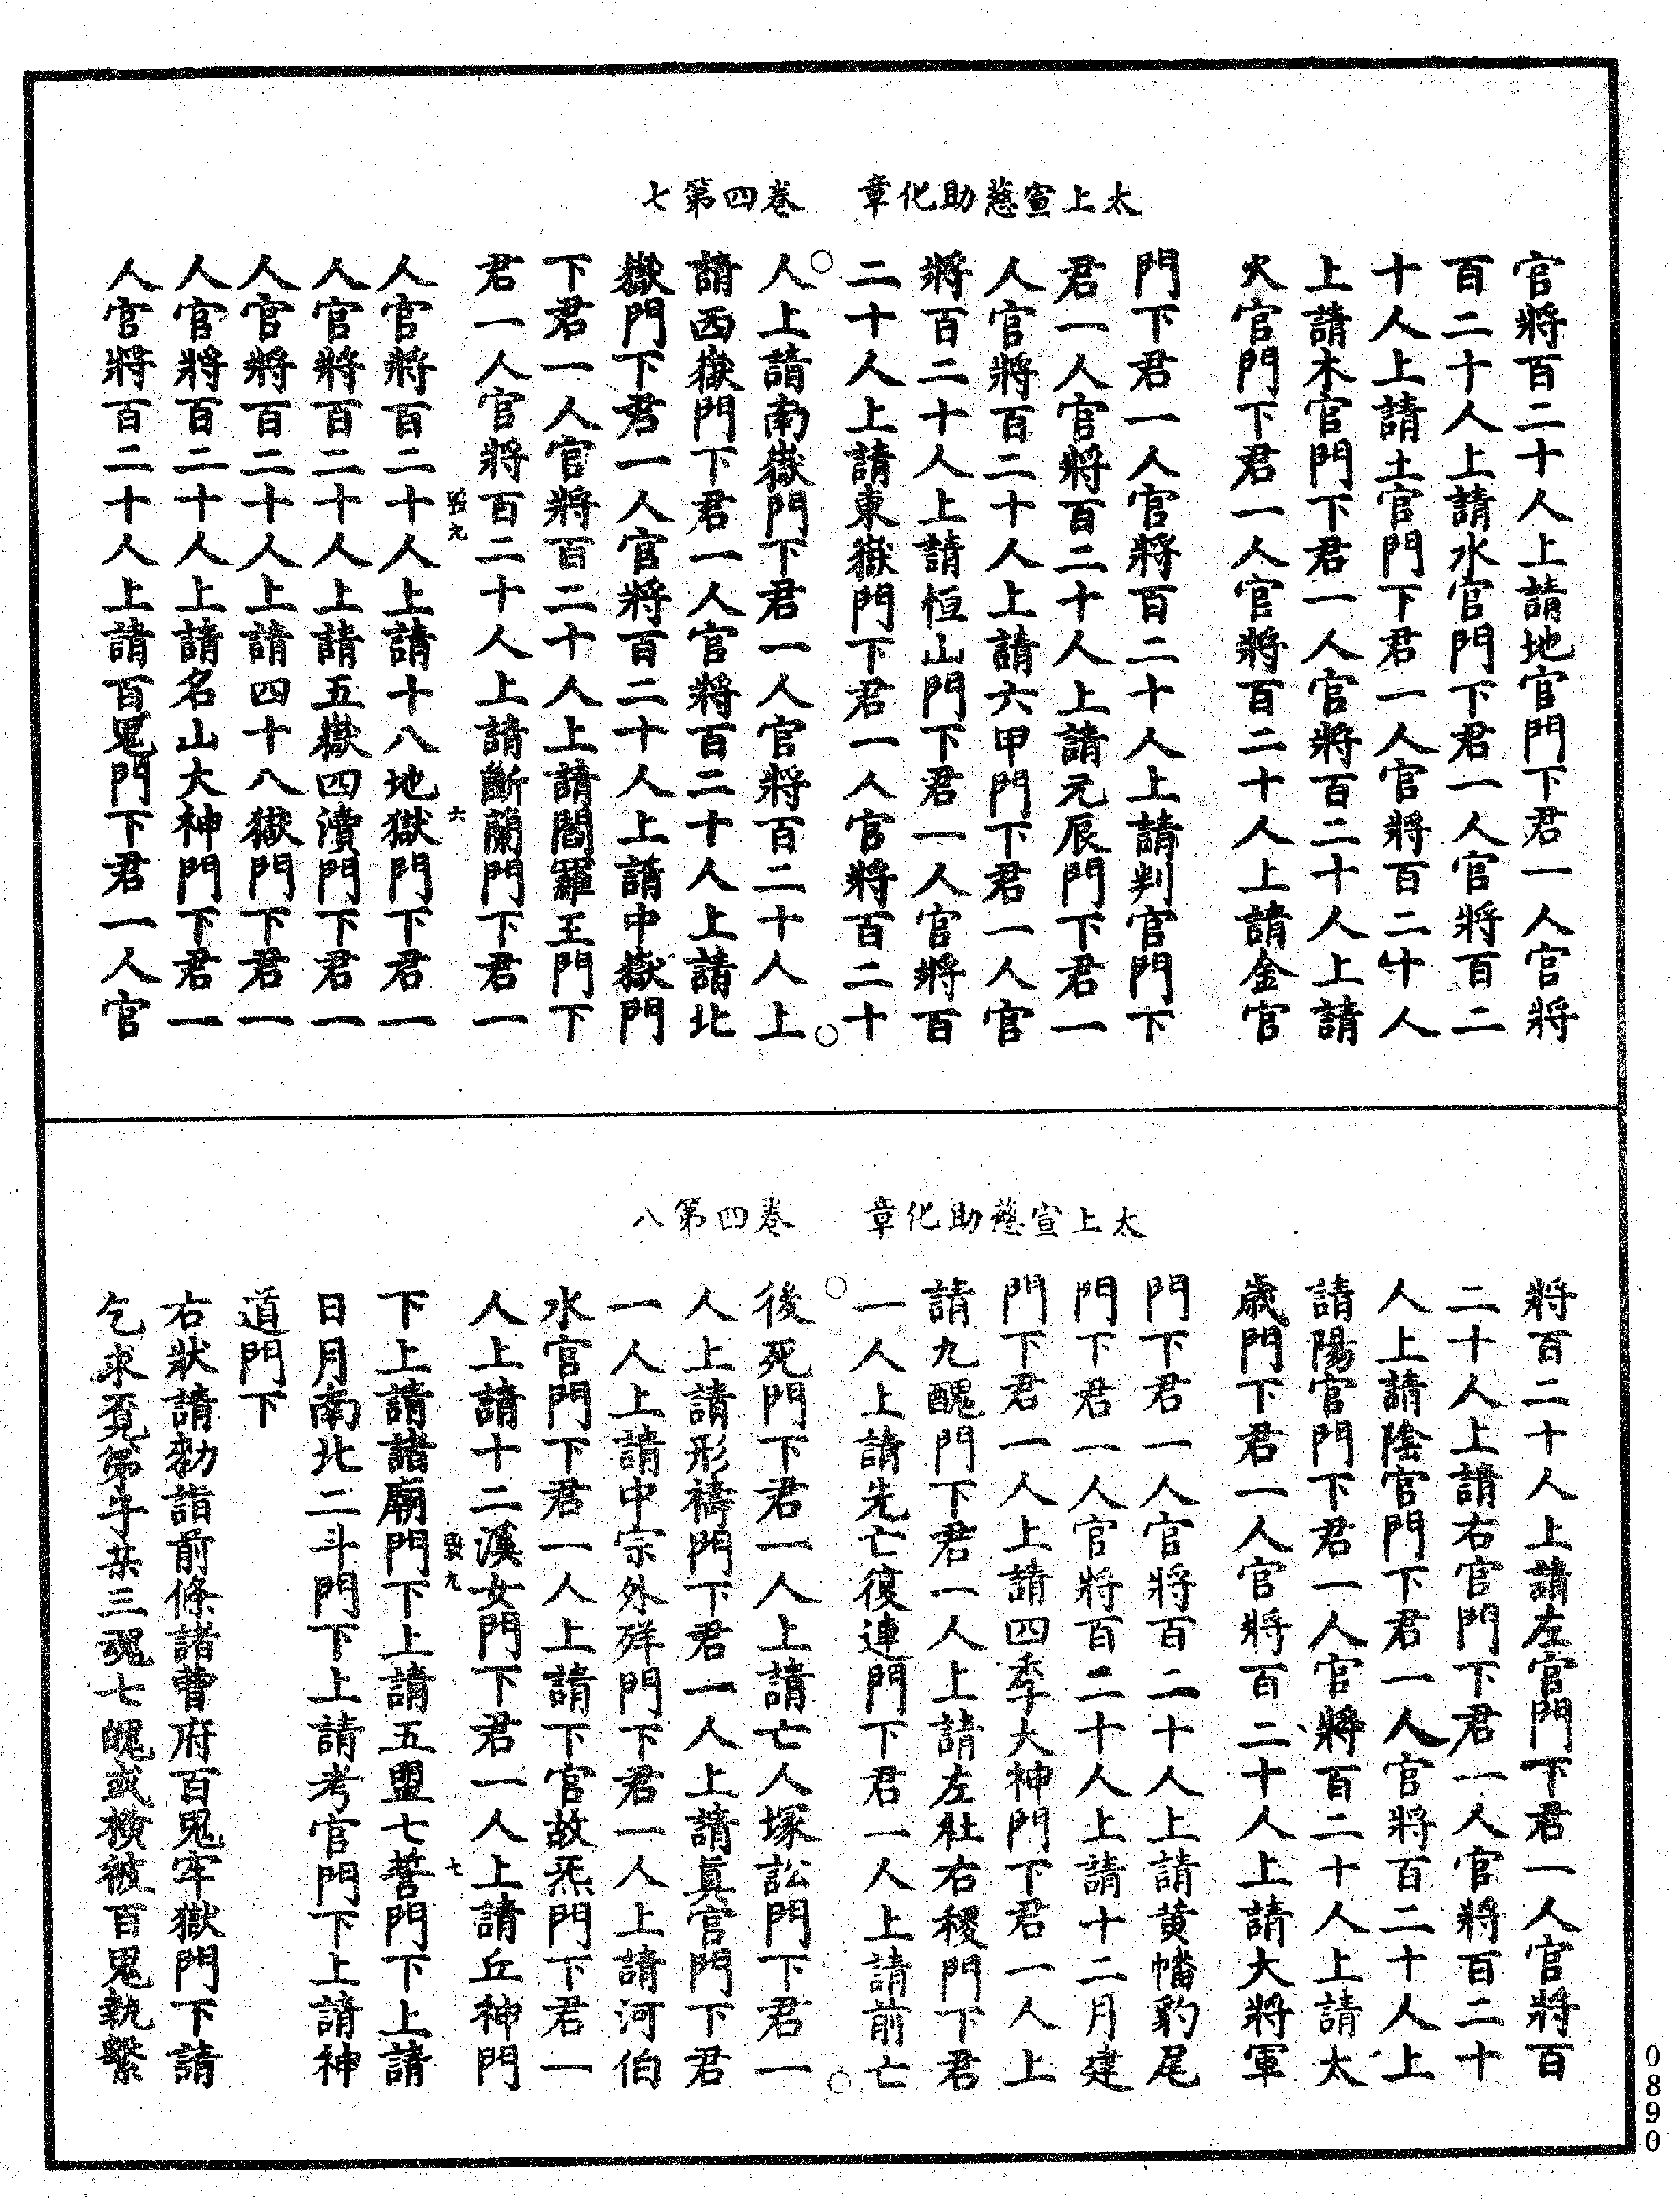 太上宣慈助化章　卷四第七
官將百二十人上請地官門下君一人官將
百二十人上請水官門下君一人官將百二
十人上請土官門下君一人官將百二十人
上請木官門下君一人官將百二十人上請
火官門下君一人官將百二十人上請金官
門下君一人官將百二十人上請判官門下
君一人官將百二十人上請元辰門下君一
人官將百二十人上請六甲門下君一人官
將百二十人上請恒山門下君一人官將百
二十人上請東嶽門下君一人官將百二十
人上請南嶽門下君一人官將百二十人上
請西嶽門下君一人官將百二十人上請北
嶽門下君一人官將百二十人上請中嶽門
下君一人官將百二十人上請閻羅王門下
君一人官將百二十人上請斷蘭門下君一
九　六
人官將百二十人上請十八地獄門下君一
人官將百二十人上請五嶽四瀆門下君一
人官將百二十人上請四十八獄門下君一
人官將百二十人上請名山大神門下君一
人官將百二十人上請百鬼門下君一人官
太上宣慈助化章　卷四第八
將百二十人上請左官門下君一人官將百
二十人上請右官門下君一人官將百二十
人上請陰官門下君一人官將百二十人上
請陽官門下君一人官將百二十人上請太
歲門下君一人官將百二十人上請大將軍
門下君一人官將百二十人上請黄幡豹尾
門下君一人官將百二十人上請十二月建
門下君一人上請四季大神門下君一人上
請九醜門下君一人上請左社右稷門下君
一人上請先亡復連門下君一人上請前亡
後死門下君一人上請亡人塚訟門下君一
人上請形禱門下君一人上請真官門下君
一人上請中宗外殃門下君一人上請河伯
水官門下君一人上請下官故炁門下君一
人上請十二溪女門下君一人上請丘神門
九　七
下上請諸廟門下上請五盟七誓門下上請
日月南北二斗門下上請考官門下上請神
道門下
右狀請勑詣前條諸曹府百鬼牢獄門下請
乞求覓弟子某三魂七魄或橫被百鬼執繫
0890